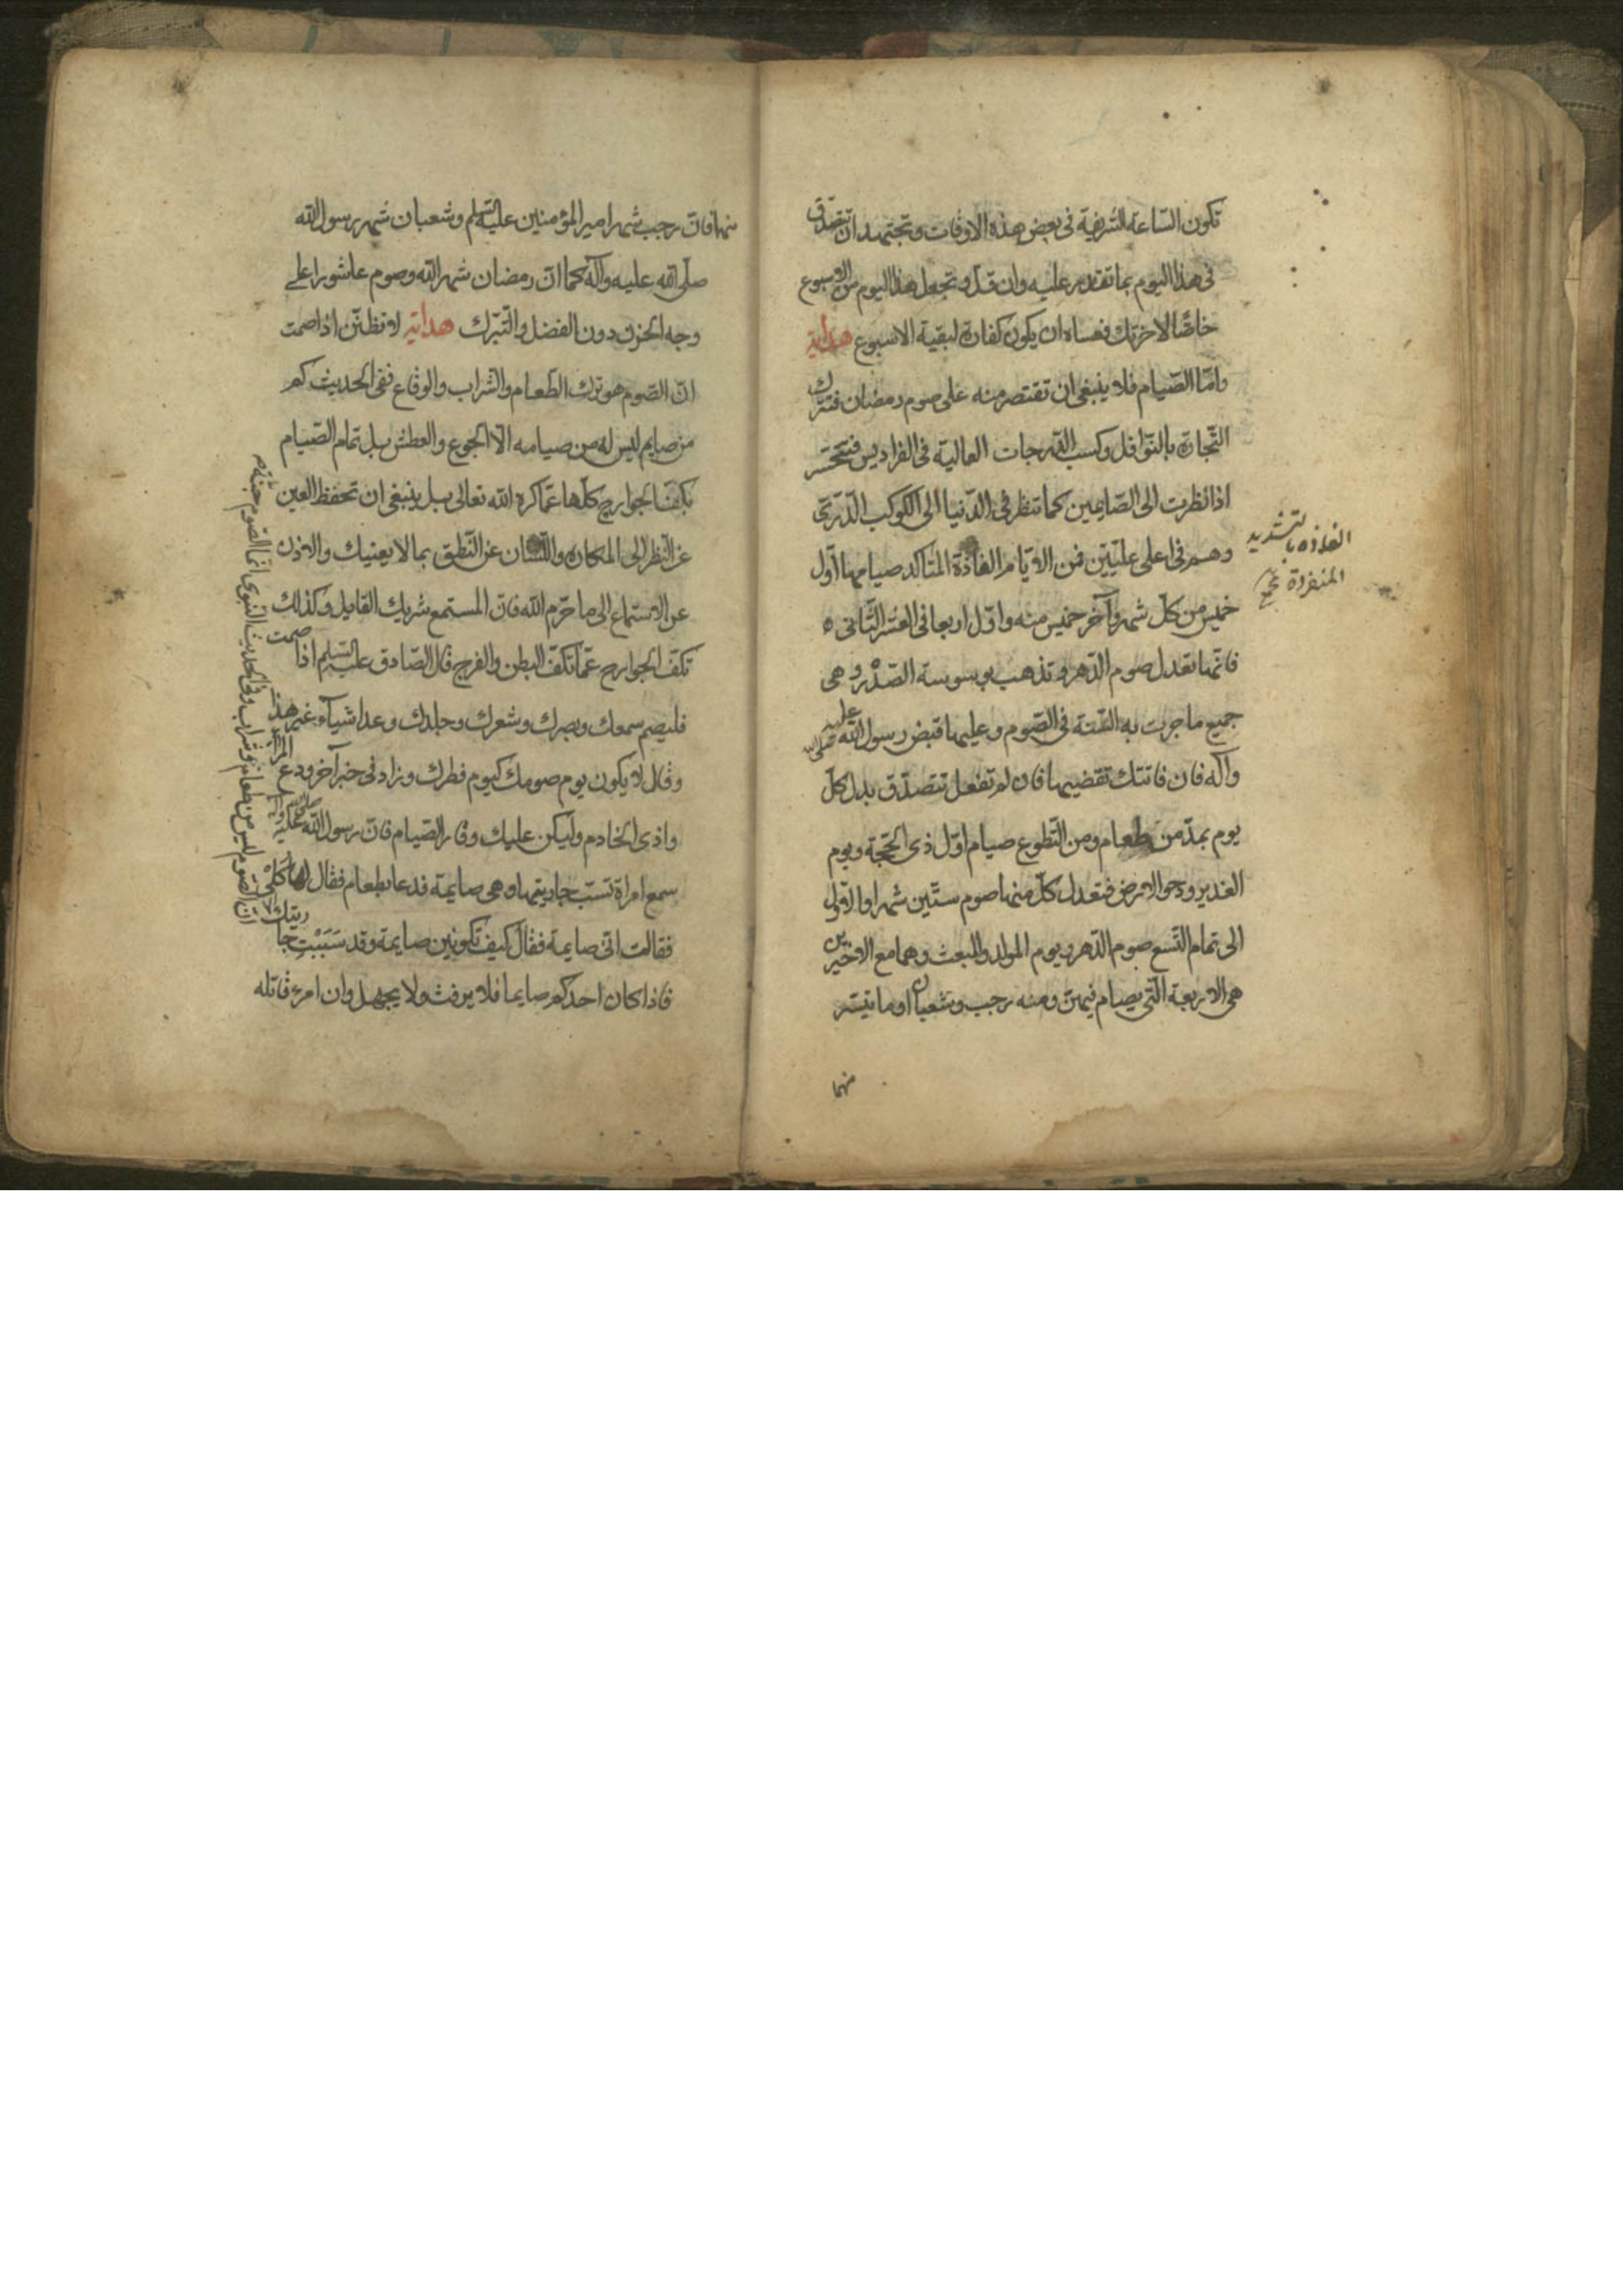 تكون الساعة الشريفة فى بعض هذه الاوقات وتجتهد ان تتصدق
فى هذا اليوم بما تقدر عليه وان قلّ وتجعل هذا اليوم من الاسبوع
خاصّا لاخرتك فعساه ان يكون كفارة لبقية الاسبوع هداية
وامّا الصّيام فلا ينبغى ان تقتصر منه على صوم رمضان فتترك
التّجارة بالنّوافل وكسب الدّرجات العالية فى الفراديس فتتحسّر
اذا نظرت الى الصّايمين كما تنظر فى الدّنيا الى الكوكب الدّرّى
وهم فى اعلى علّيّين فمن الايّام الفاذّة المتاكد صيامها اوّل
خميس من كلّ شهر وآخر خميس منه واوّل اربعا فى العشر الثّانى
فانّها تعدل صوم الدّهر وتذهب بوسوسة الصّدر وهى
جميع ما جرت به السّنّة فى الصّوم وعليها قبض رسول الله صلى الله عليه
وآله فان فاتتك تقضيها فان لم تفعل تتصدّق بدل كلّ
يوم بمدّ من طعام ومن التّطوع صيام اوّل ذى الحجّة ويوم
الغدير ودحو الارض فتعدل كلّ منها صوم ستّين شهرا والاوّل
الى تمام التّسع صوم الدّهر ويوم المولد والمبعث وهما مع الاخيرين
هى الاربعة الّتى يصام فيهنّ ومنه رجب وشعبان او ما تيسّر
منهما
الفاذة بالتشديد
المنفردة مجمع
منها فانّ رجب شهر امير المؤمنين عليه السّلم وشعبان شهر رسول الله
صلّى الله عليه وآله كما انّ رمضان شهر الله وصوم عاشورا على
وجه الحزن دون الفضل والتّبرّك هداية لا تظنّنّ اذا صمت
انّ الصّوم هو ترك الطّعام والشّراب والوقاع ففى الحديث كم
من صايم ليس له من صيامه الّا الجوع والعطش بل تمام الصّيام
بكفّ الجوارح كلّها عمّا كره الله تعالى بل ينبغى ان تحفظ العين
عن النّظر الى المكاره واللّسان عن النّطق بما لا يعنيك والاذن
عن الاستماع الى ما حرّم الله فانّ المستمع شريك القايل وكذلك
تكفّ الجوارح عمّا تكفّ البطن والفرج قال الصّادق عليه السّلم اذا صمت
فليصم سمعك وبصرك وشعرك وجلدك وعدا شيآء غير هذا
وقال لا يكون يوم صومك كيوم فطرك وزاد فى خبر آخر ودع المرآء
واذى الخادم وليكن عليك وقار الصّيام فانّ رسول الله صلى الله عليه وآله
سمع امراة تسبّ جاريتها وهى صايمة فدعا بطعام فقال لها كلى
فقالت انّى صايمة فقال كيف تكونين صايمة وقد سَبَبْتِ جاريتك
فاذا كان احدكم صايما فلا يرفث ولا يجهل وان امرء قاتله
انّ الصوم ليس من طعام وشراب وفى الحديث النبوى انما الصوم جنة